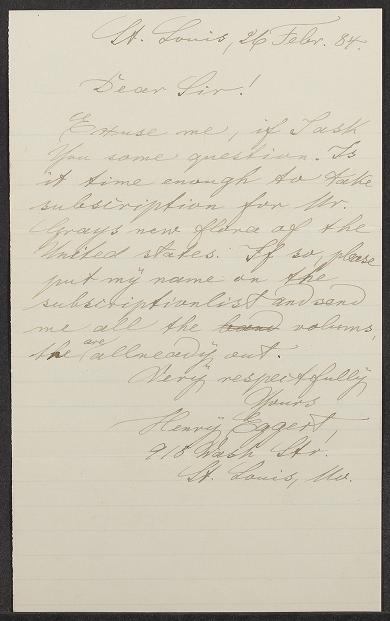 St. Louis, 26 Febr. 84.
Dear Sir!
Excuse me, if I ask
You some question. Is
it time enough to take
subscription for Mr.
Grays new flora of the
United states. If so, please
put my name on the
subscriptionlist and send
me all the band volums,
the are allready out.
Very respectfully
Yours
Henry Eggert,
918 Wash Str.
St. Louis, Mo.